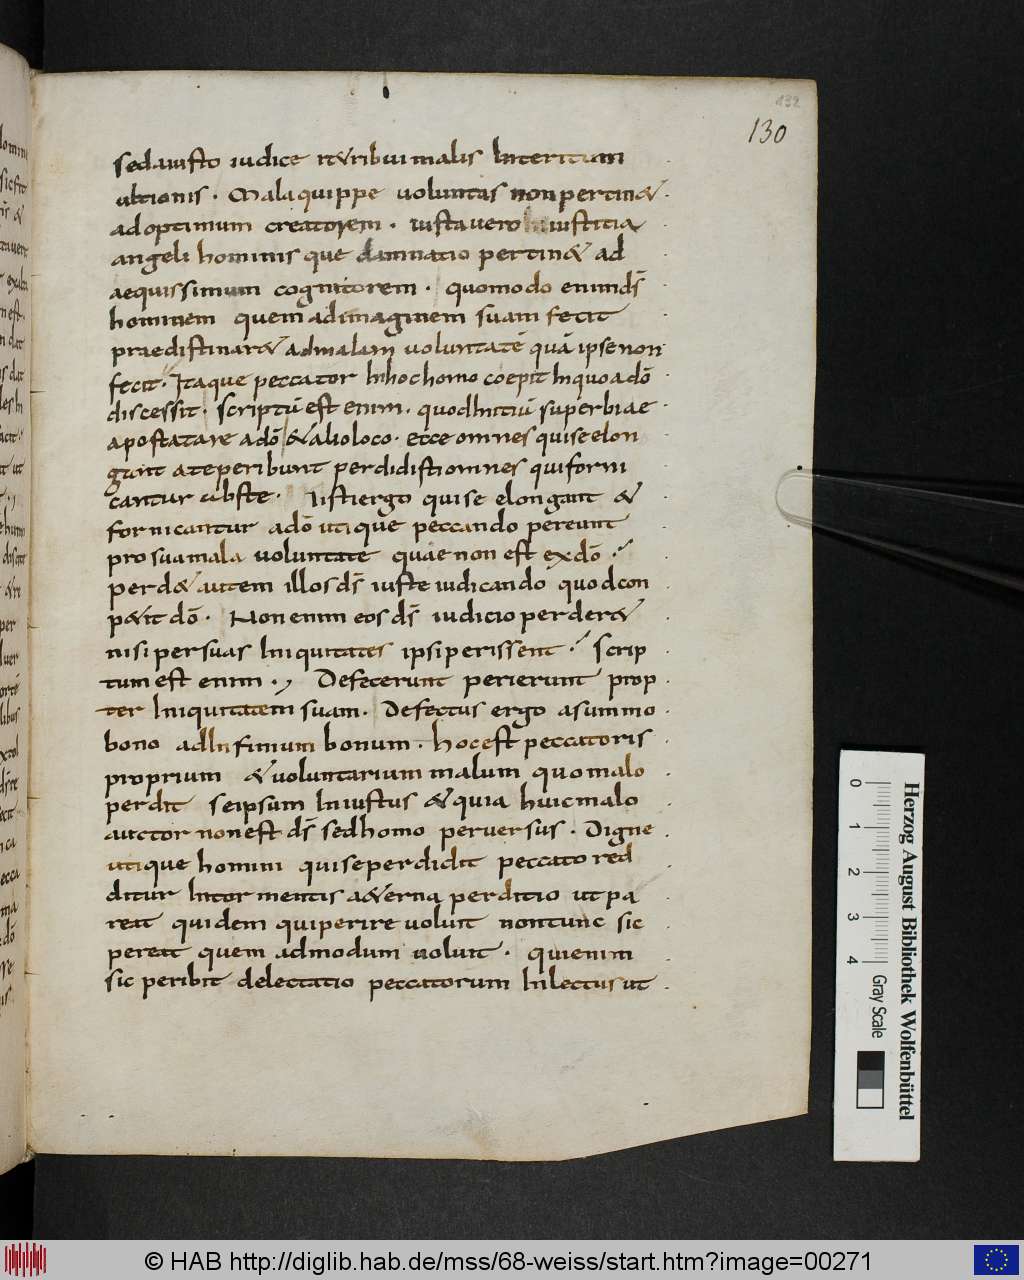 132
130
sed a iusto iudice retribui malis interitum
ultionis . Mala quippe voluntas non pertin&
ad optimum creatorem . iusta vero iniustitia
angeli hominis que damnatio pertin& ad
aequissimum cognitorem . quomodo enim dš
hominem quem ad imaginem suam fecit
praedistinar& ad malam voluntatē quā ipse non
fecit . Itaque peccator in hoc homo coepit in quo a dō
discessit . scriptū est enim . quod initiū superbiae
apostatare a dō & alio loco . ecce omnes qui se elon
gant a te peribunt perdidisti omnes qui forni
cantur abs te . Iisti ergo qui se elongant &
fornicantur a dō utique peccando pereunt
pro sua mala voluntate quae non est ex dō .
perd& autem illos dš iuste iudicando quod con
p&it dō . Non enim eos dš iudicio perder&
nisi per suas iniquitates ipsi perissent . scrip
tum est enim . Defecerunt perierunt prop
ter iniquitatem suam . Defectus ergo a summo
bono ad infimum bonum . hoc est peccatoris
proprium & voluntarium malum quo malo
perdit seipsum iniustus & quia huic malo
auctor non est dš sed homo perversus . Digne
utique homini qui se perdidit peccato red
ditur in tormentis a&erna perditio ut pa
reat quidem qui perire voluit non tunc sic
pereat quem admodum voluit . qui enim
sic peribit delectatio peccatorum in lectus ut
0 1 2 3 4
Herzog August Bibliothek Wolfenbüttel
Gray Scale
© HAB http://diglib.hab.de/mss/68-weiss/start.htm?image=00271